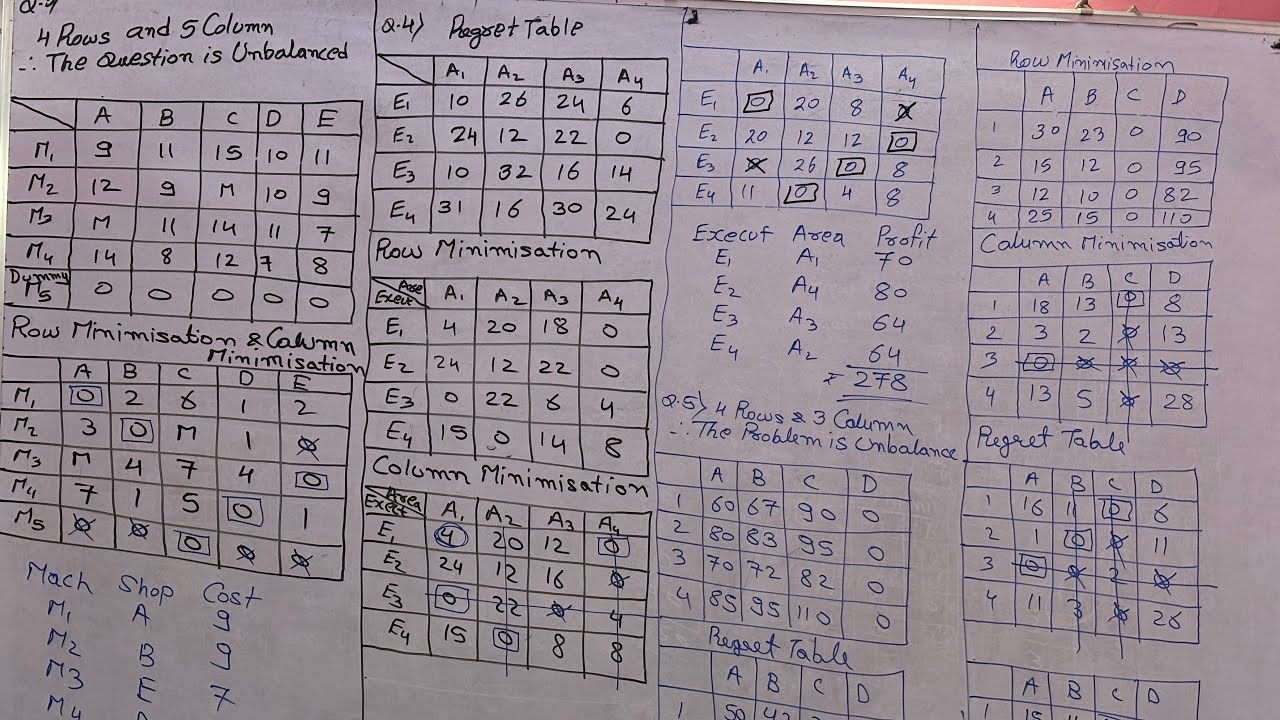 Q.
4 Rows and 5 Column
∴ The Question is Unbalanced
A B C D E
M1 9 11 15 10 11
M2 12 9 M 10 9
M3 M 11 14 11 7
M4 14 8 12 7 8
Dummy
M5 0 0 0 0 0
Row Minimisation & Column
Minimisation
A B C D E
M1 0 2 6 1 2
M2 3 0 M 1 0
M3 M 4 7 4 0
M4 7 1 5 0 1
M5 0 0 0 0 0
Mach Shop Cost
M1 A 9
M2 B 9
M3 E 7
M4
Q.4) Regret Table
A1 A2 A3 A4
E1 10 26 24 6
E2 24 12 22 0
E3 10 32 16 14
E4 31 16 30 24
Row Minimisation
Area
Execut A1 A2 A3 A4
E1 4 20 18 0
E2 24 12 22 0
E3 0 22 6 4
E4 15 0 14 8
Column Minimisation
Area
Execut A1 A2 A3 A4
E1 4 20 12 0
E2 24 12 16 0
E3 0 22 0 4
E4 15 0 8 8
A1 A2 A3 A4
E1 0 20 8 0
E2 20 12 12 0
E3 0 26 0 8
E4 11 0 4 8
Execut Area Profit
E1 A1 70
E2 A4 80
E3 A3 64
E4 A2 64
= 278
Q.5) 4 Rows & 3 Column
∴ The Problem is Unbalance
A B C D
1 60 67 90 0
2 80 83 95 0
3 70 72 82 0
4 85 95 110 0
Regret Table
A B C D
1 50 43
Row Minimisation
A B C D
1 30 23 0 90
2 15 12 0 95
3 12 10 0 82
4 25 15 0 110
Column Minimisation
A B C D
1 18 13 0 8
2 3 2 0 13
3 0 0 0 0
4 13 5 0 28
Regret Table
A B C D
1 16 11 0 6
2 1 0 0 11
3 0 0 2 0
4 11 3 0 26
A B C D
1 15 11